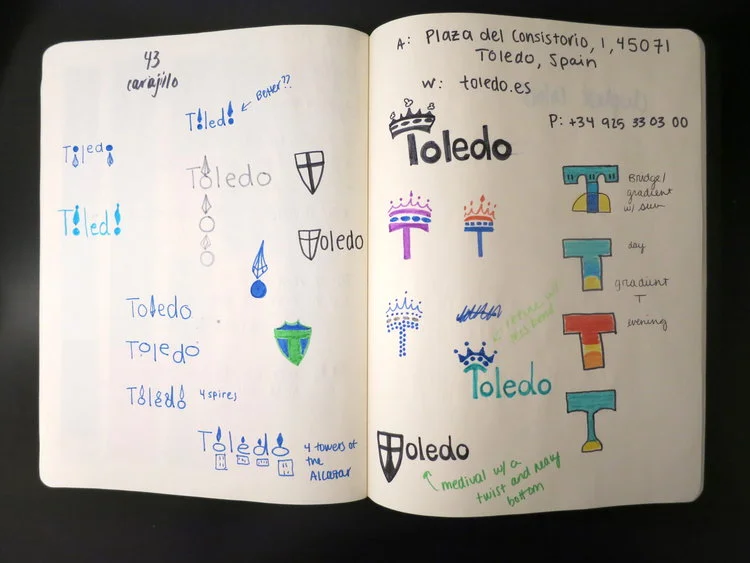 43
carajilo
T!led!
Better??
Toledo
T!led!
Toledo
Toledo
Toledo
Toledo
Toledo 4 spires
Toledo
4 towers of
the
Alcazar
A: Plaza del Consistorio, 1, 45071
Toledo, Spain
W: toledo.es
P: +34 925 33 03 00
Toledo
T
T
T
T
Bridge/
gradient
w/ sun
T
day
gradient
T
T
evening
T
Toledo
Toledo
medival w/a
twist and wavy
bottom